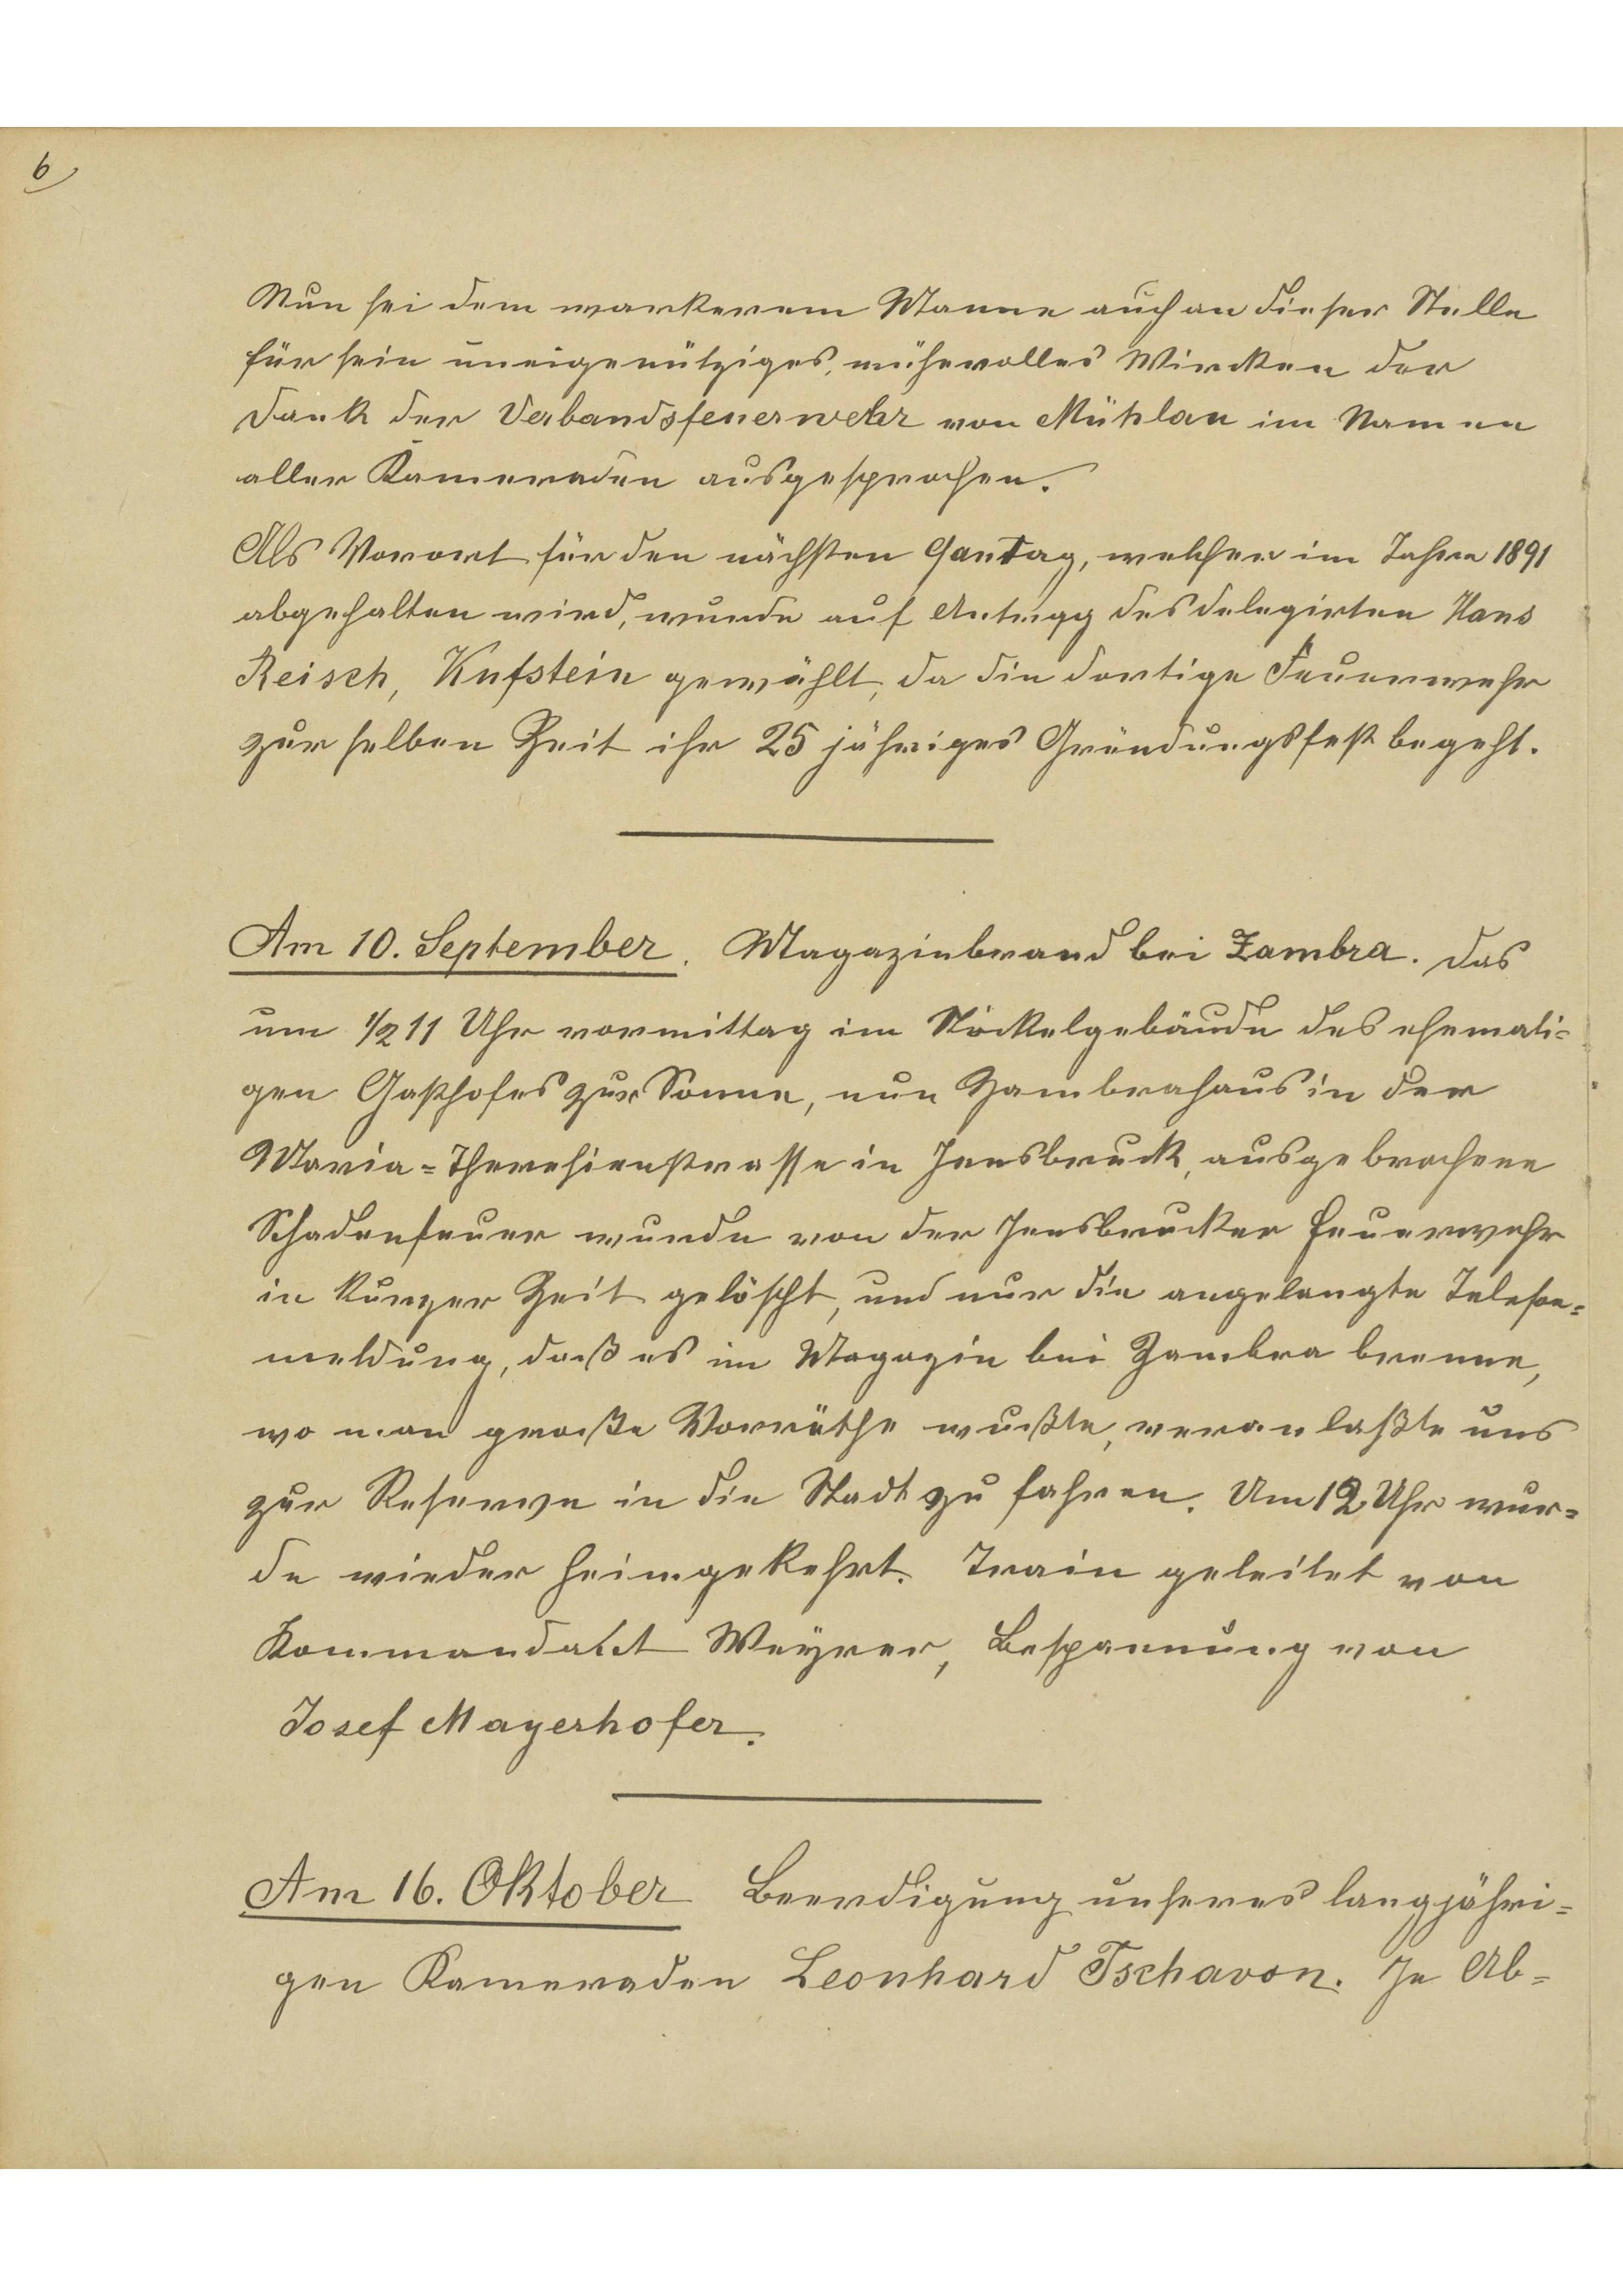 6
Nun sei dem wackerem Manne auch an dieser Stelle
für sein uneigenütziges, mühevolles Wircken der
Dank der Verbandsfeuerwehr von Mühlau im Namen
aller Kameraden ausgesprochen.
Als Vorort für den nächsten Gautag, welcher im Jahre 1891
abgehalten wird, wurde auf Antragg des delegirten Hans
Reisch, Kufstein gewählt, da die dortige Feuerwehr
zur selben Zeit ihr 25 jähriges Gründungsfest begeht.
Am 10. September. Magazinbrand bei Zambra. Das
um 1/2 11 Uhr vormittag im Stöckelgebäude des ehemali=
gen Gasthofes zur Sonne, nun Zambrahaus in der
Maria=Theresienstrasse in Innsbruck, ausgebrochene
Schadenfeuer wurde von der Innsbrucker Feuerwehr
in kurzer Zeit gelöscht, und nur die angelangte Telefon=
meldung, daß es im Magazin bei Zambra brenne,
wo man große Vorräthe wußte, veranlaßte uns
zur Reserve in die Stadt zu fahren. Um 12 Uhr wur=
de wieder heimgekehrt. Train geleitet von
Kommandant Weyrer, Bespannung von
Josef Mayerhofer.
Am 16. Oktober Beerdigung unseres langjähri=
gen Kameraden Leonhard Tschavon. In Ab=